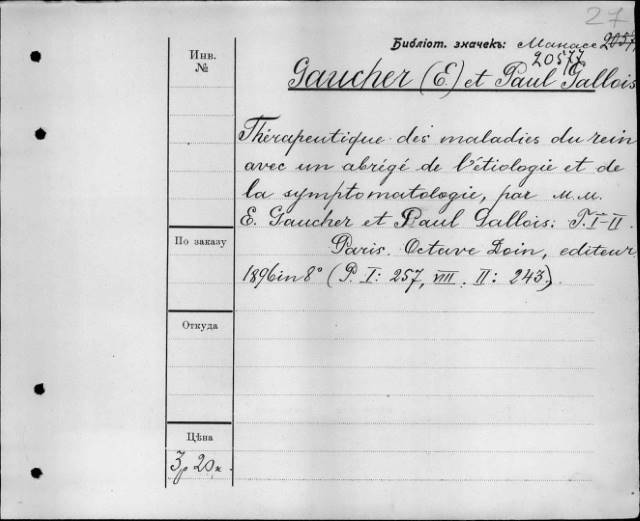 27
Библіот. значекъ: Манасе 2057
20577
Инв.
№
Gaucher (E.) et Paul Gallois
Thérapeutique des maladies du rein
avec un abrégé de l'étiologie et de
la symptomatologie, par M.M.
E. Gaucher et Paul Gallois. T. I-II.
Paris. Octave Doin, editeur,
1896 in 8° (P. I: 257, VIII. II: 243.).
По заказу
Откуда
Цѣна
3 р 20 к.